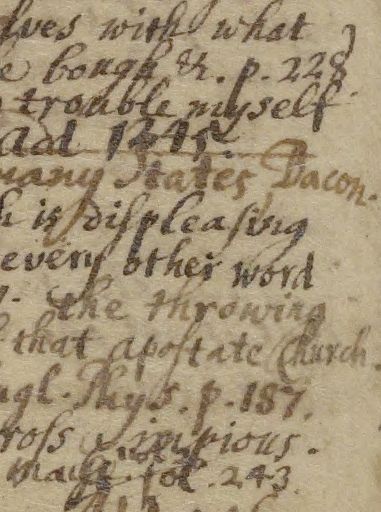 lves with what
e bough &. p. 228.
trouble myself
1245.
many States, Bacon.
h is displeaſing
every other word
the throwing
that apoſtate Church.
ngl. Phys. p. 187.
roſs impious.
vol.
fol. 243.